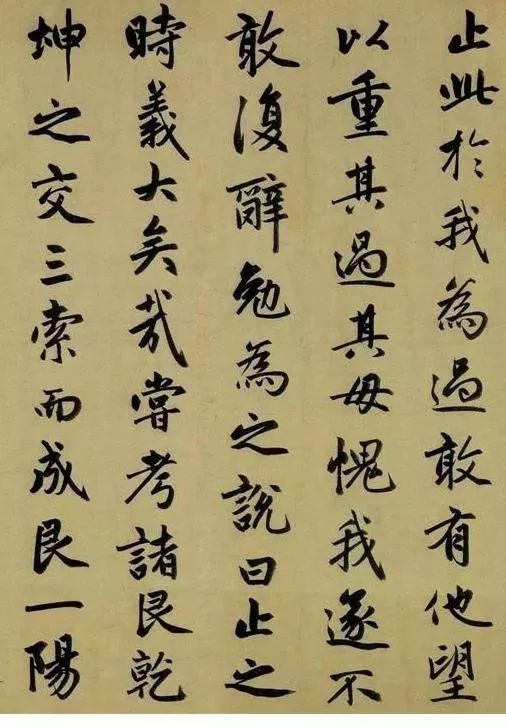 止此於我為過敢有他望
以重其過其毋愧我遂不
敢復辭勉為之說曰止之
時義大矣哉嘗考諸艮乾
坤之交三索而成艮一陽